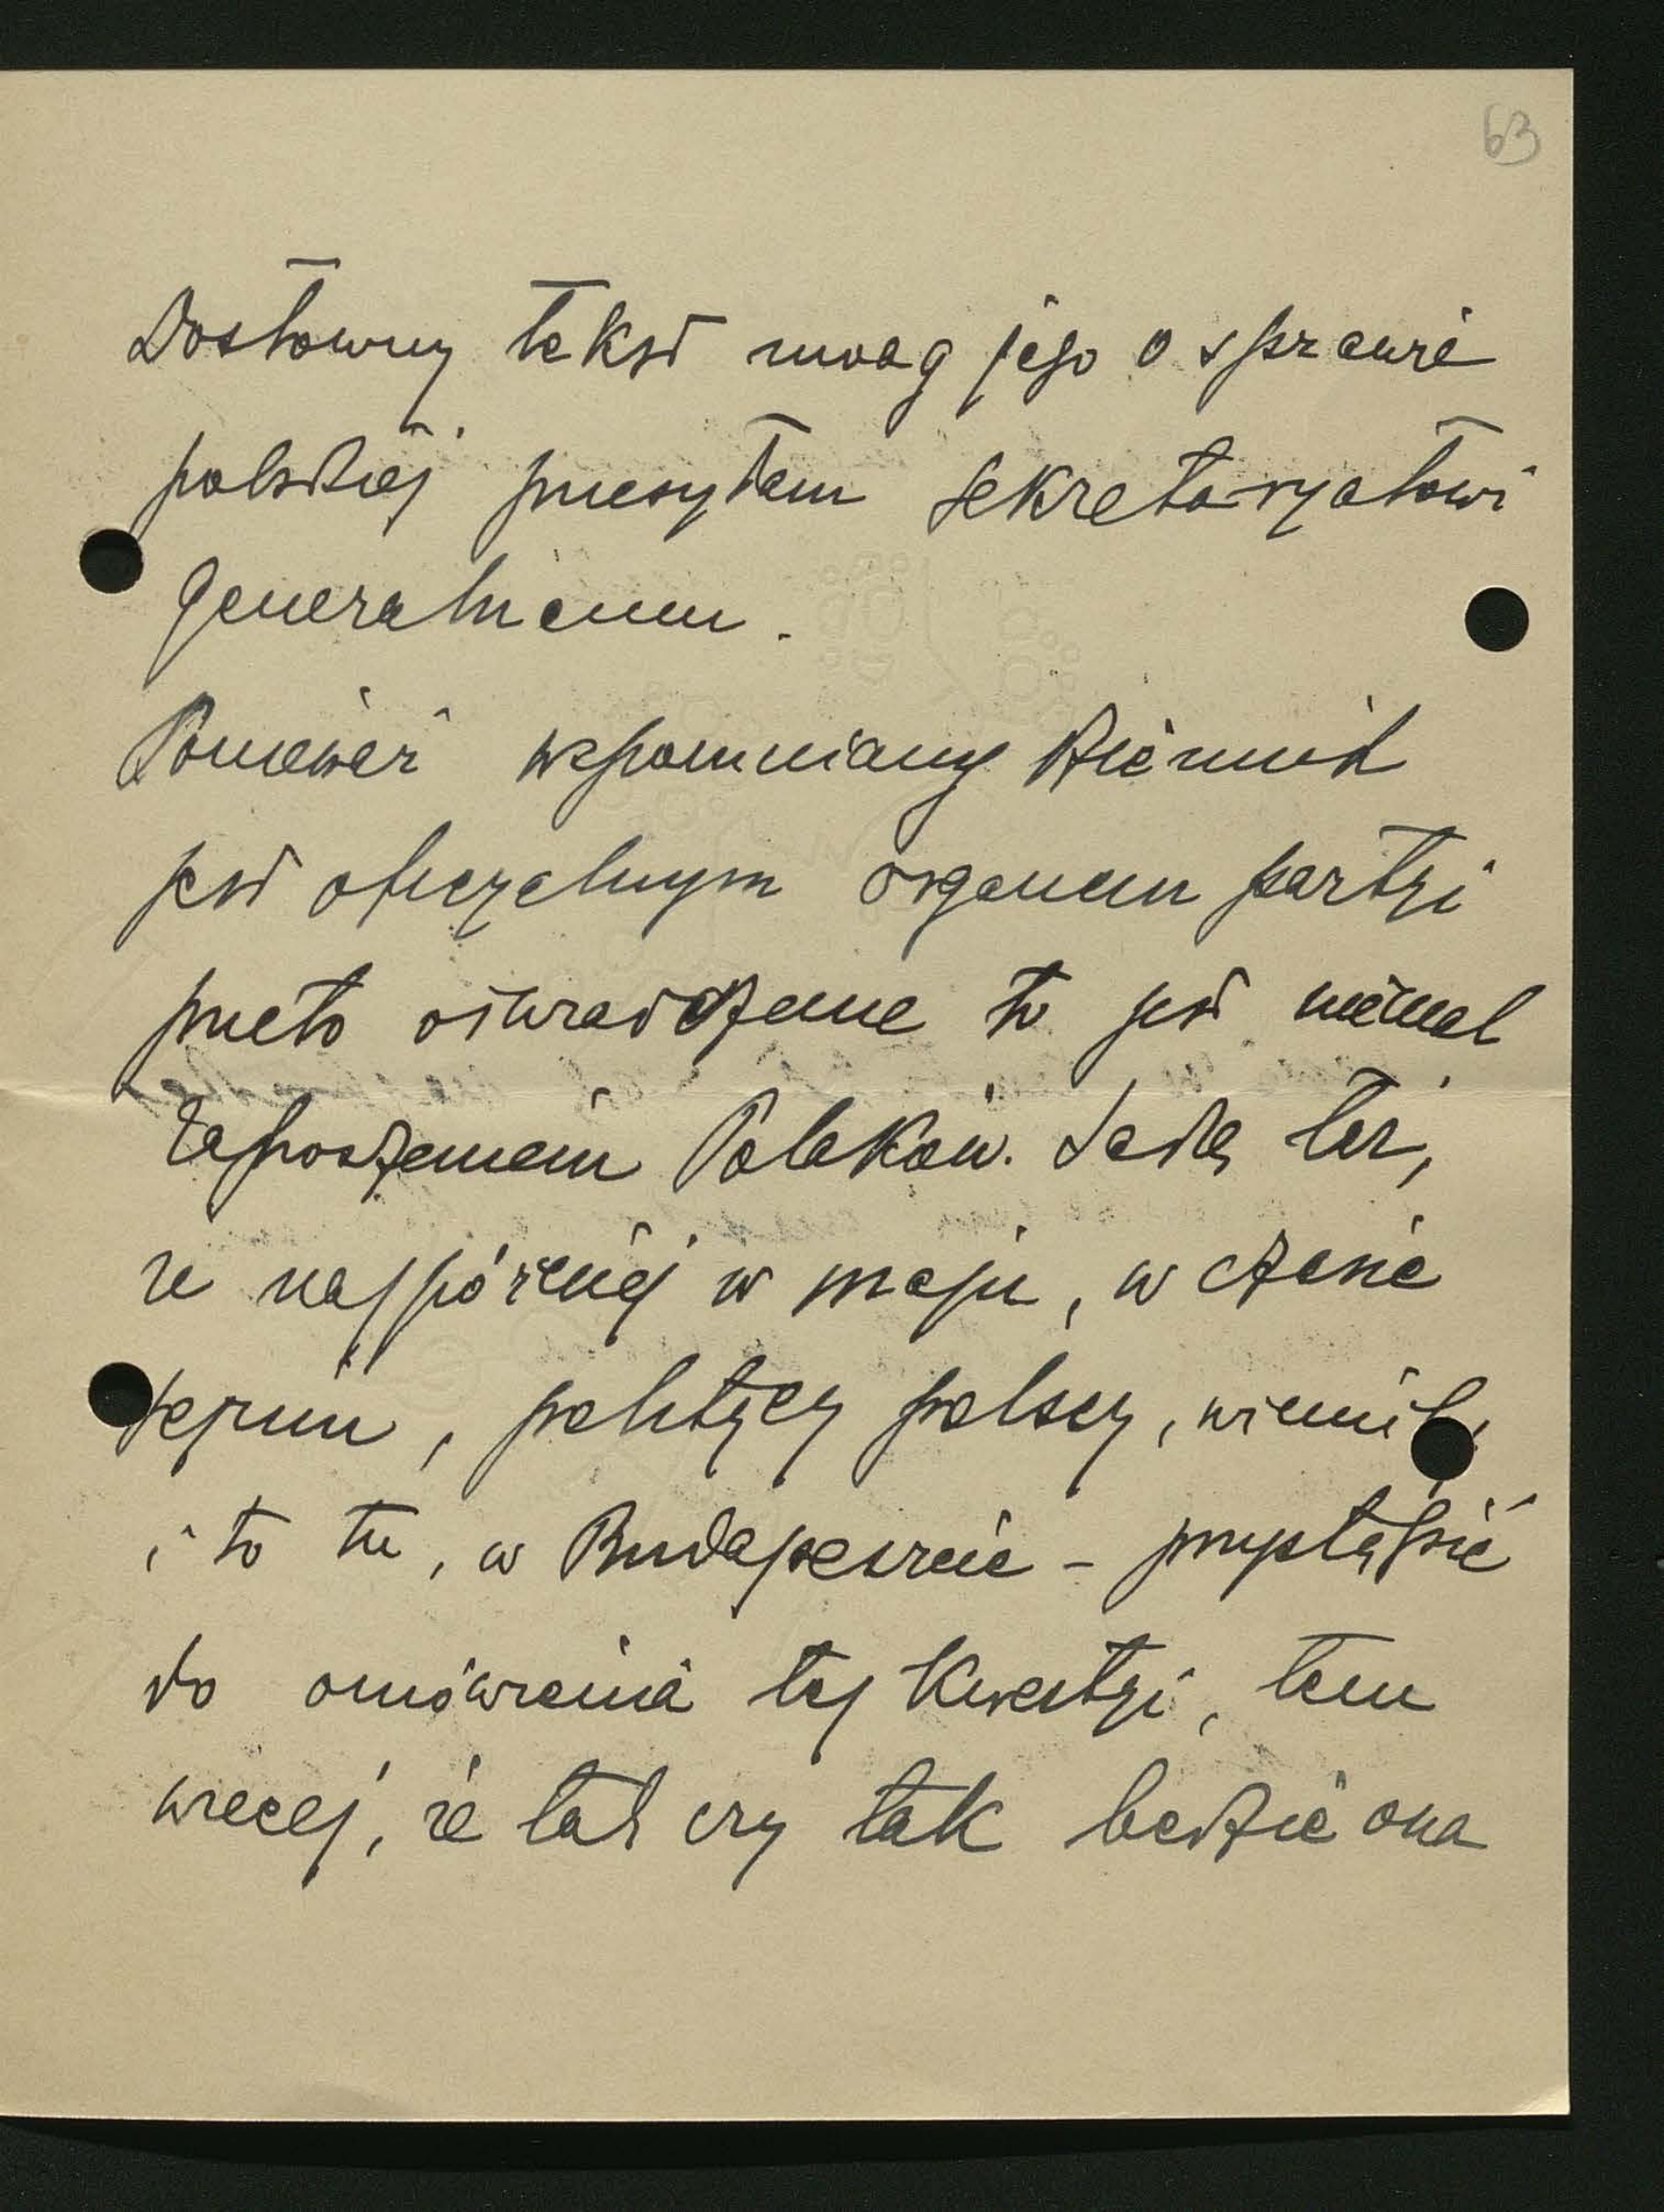 63
Dosłowny tekst uwag jego o sprawie
polskiej przesyłam Sekretaryatowi
Generalnemu.
Ponieważ wspomniany dziennik
jest oficyalnym organem partyi
przeto oświadczenie to jest niemal
zaproszeniem Polaków. Sądzę też,
że najpóźniej w maju, w czasie
sejmu, politycy polscy, winniby
i to tu, w Budapeszcie - przystąpić
do omówienia tej kwestyi, tem
więcej, że tak czy tak będzie ona